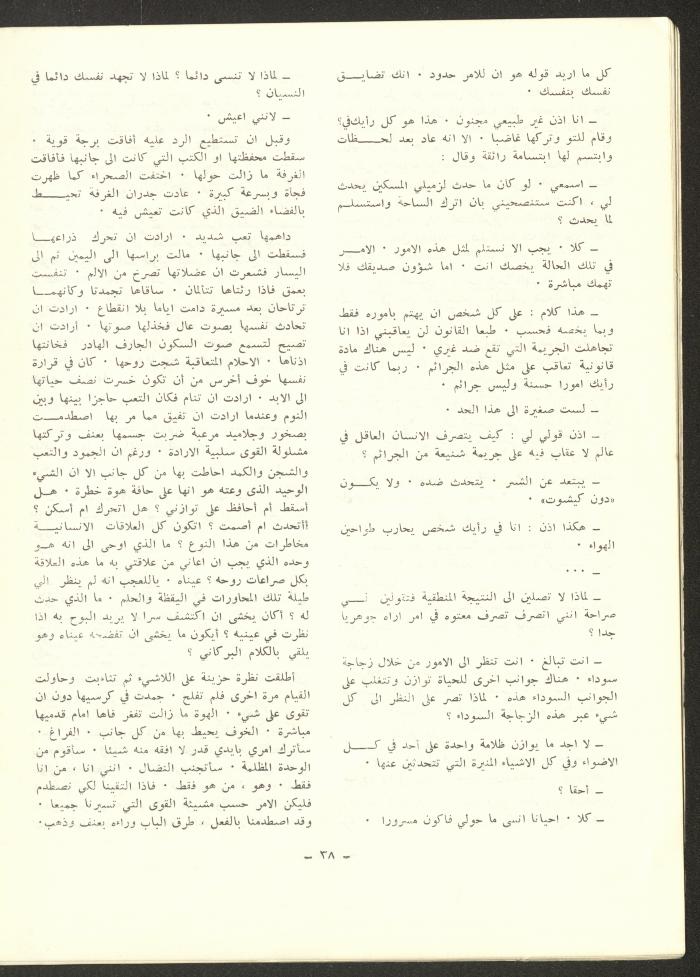 كل ما اريد قوله هو ان للامر حدود ٠ انك تضايــق
نفسك بنفسك ٠
ــ انا اذن غير طبيعي مجنون ٠ هذا هو كل رأيك في؟
وقام للتو وتركها غاضبا ٠ الا انه عاد بعد لحــظات
وابتسم لها ابتسامة رائقة وقال :
ــ اسمعي ٠ لو كان ما حدث لزميلي المسكين يحدث
لي ، اكنت ستنصحيني بان اترك الساحة واستسلــم
لما يحدث ؟
ــ كلا ٠ يجب الا نستلم لمثل هذه الامور ٠ الامــر
في تلك الحالة يخصك انت ٠ اما شؤون صديقك فلا
تهمك مباشرة ٠
ــ هذا كلام : على كل شخص ان يهتم باموره فقط
وبما يخصه فحسب ٠ طبعا القانون لن يعاقبني اذا انا
تجاهلت الجريمة التي تقع ضد غيري ٠ ليس هناك مادة
قانونية تعاقب على مثل هذه الجرائم ٠ ربما كانت في
رأيك امورا حسنة وليس جرائم ٠
ــ لست صغيرة الى هذا الحد ٠
ــ اذن قولي لي : كيف يتصرف الانسان العاقل في
عالم لا عقاب فيه على جريمة شنيعة من الجرائم ؟
ــ يبتعد عن الشر ٠ يتحدث ضده ٠ ولا يكــون
«دون كيشوت» ٠
ــ هكذا اذن : انا في رأيك شخص يحارب طواحين
الهواء ٠
ــ ٠٠٠
ــ لماذا لا تصلين الى النتيجة المنطقية فتقولين لــي
صراحة انني اتصرف تصرف معتوه في امر اراه جوهريا
جدا ؟
ــ انت تبالغ ٠ انت تنظر الى الامور من خلال زجاجة
سوداء ٠ هناك جوانب اخرى للحياة توازن وتتغلب على
الجوانب السوداء هذه ٠ لماذا تصر على النظر الى كل
شيء عبر هذه الزجاجة السوداء ؟
ــ لا اجد ما يوازن ظلامة واحدة على أحد في كــل
الاضواء وفي كل الاشياء المنيرة التي تتحدثين عنها ٠
ــ أحقا ؟
ــ كلا ٠ احيانا انسى ما حولي فاكون مسرورا ٠
ــ لماذا لا تنسى دائما ؟ لماذا لا تجهد نفسك دائما في
النسيان ؟
ــ لانني اعيش ٠
وقبل ان تستطيع الرد عليه أفاقت برجة قوية ٠
سقطت محفظتها او الكتب التي كانت الى جانبها فأفاقت
الغرفة ما زالت حولها ٠ اختفت الصحراء كما ظهرت
فجأة وبسرعة كبيرة ٠ عادت جدران الغرفة تحيــط
بالفضاء الضيق الذي كانت تعيش فيه ٠
داهمها تعب شديد ٠ ارادت ان تحرك ذراعهــا
فسقطت الى جانبها ٠ مالت براسها الى اليمين ثم الى
اليسار فشعرت ان عضلاتها تصرخ من الالم ٠ تنفست
بعمق فاذا رئتاها تتألمان ٠ ساقاها تجمدتا وكأنهمــا
ترتاحان بعد مسيرة دامت اياما بلا انقطاع ٠ ارادت ان
تحادث نفسها بصوت عال فخذلها صوتها ٠ ارادت ان
تصيح لتسمع صوت السكون الجارف الهادر فخانتها
اذناها ٠ الاحلام المتعاقبة شجت روحها ٠ كان في قرارة
نفسها خوف أخرس من ان تكون خسرت نصف حياتها
الى الابد ٠ ارادت ان تنام فكان التعب حاجزا بينها وبين
النوم وعندما ارادت ان تفيق مما مر بها اصطدمــت
بصخور وجلاميد مرعبة ضربت جسمها بعنف وتركتها
مشلولة القوى سلبية الارادة ٠ ورغم ان الجمود والتعب
والشجن والكمد احاطت بها من كل جانب الا ان الشيء
الوحيد الذى وعته هو انها على حافة هوة خطرة ٠ هــل
أسقط أم أحافظ على توازني ؟ هل اتحرك ام أسكن ؟
أأتحدث ام أصمت ؟ اتكون كل العلاقات الانسانيــة
مخاطرات من هذا النوع ؟ ما الذي اوحى الى انه هــو
وحده الذي يجب ان اعاني من علاقتي به ما هذه العلاقة
بكل صراعات روحه ؟ عيناه ٠ ياللعجب انه لم ينظر الي
طيلة تلك المحاورات في اليقظة والحلم ٠ ما الذي حدث
له ؟ أكان يخشى ان اكتشف سرا لا يريد البوح به اذا
نظرت في عينيه ؟ أيكون ما يخشى ان تفضحه عيناه وهو
يلقي بالكلام البركاني ؟
أطلقت نظرة حزينة على اللاشيء ثم تثاءبت وحاولت
القيام مرة اخرى فلم تفلح ٠ جمدت في كرسيها دون ان
تقوى على شيء ٠ الهوة ما زالت تفغر فاها امام قدميها
مباشرة ٠ الخوف يحيط بها من كل جانب ٠ الفراغ ٠
سأترك امري بأيدي قدر لا افقه منه شيئا ٠ سأقوم من
الوحدة المظلمة ٠ سأتجنب النضال ٠ انني انا ، من انا
فقط ٠ وهو ، من هو فقط ٠ فاذا التقينا لكي نصطدم
فليكن الامر حسب مشيئة القوى التي تسيرنا جميعا ٠
وقد اصطدمنا بالفعل ، طرق الباب وراءه بعنف وذهب٠
ــ ٣٨ ــ